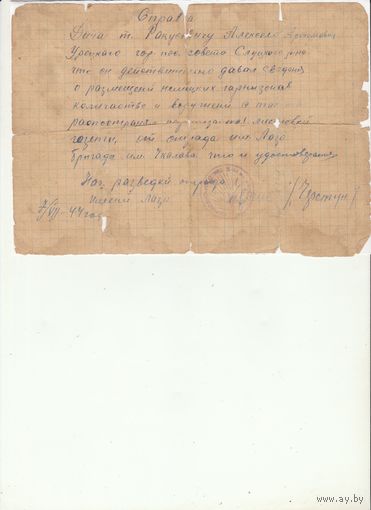 Справка
Дана т. Ракусевичу Алексею
Урецкого гор. пос. совета Слуцкого р-на
что он действительно давал сведения
о размещении немецких гарнизонах
количестве и воружении а также
распостранял партизанские листовки
газеты, от отряда им. Лазо
бригада им. Чкалова что и удостоверяем
Нач. разведки отряда
имени Лазо
7/VII-44 год
www.ay.by